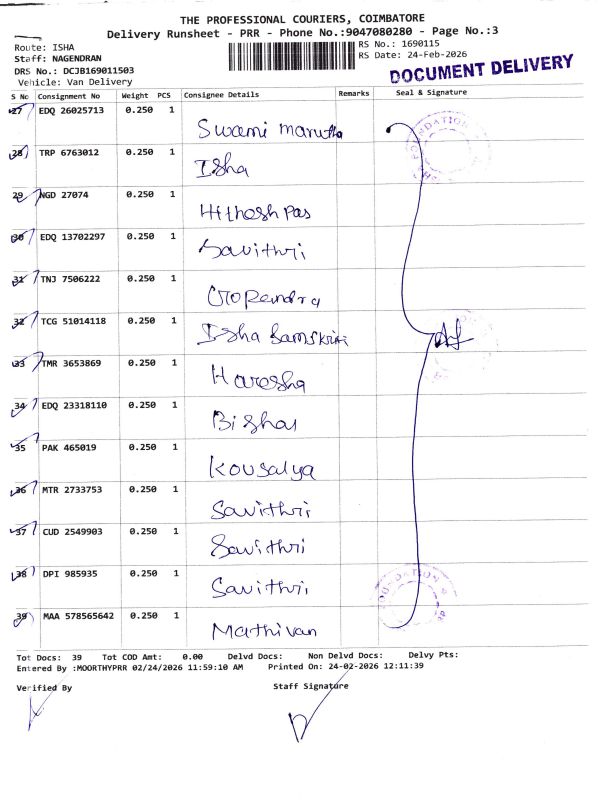 THE PROFESSIONAL COURIERS, COIMBATORE
Delivery Runsheet - PRR - Phone No.:9047080280 - Page No.:3
Route: ISHA
RS No.: 1690115
Staff: NAGENDRAN
RS Date: 24-Feb-2026
DRS No.: DCJB169011503
Vehicle: Van Delivery
DOCUMENT DELIVERY
S No Consignment No Weight PCS Consignee Details Remarks Seal & Signature
27 EDQ 26025713 0.250 1
Swami Marutha
28 TRP 6763012 0.250 1
Isha
29 NGD 27074 0.250 1
Hithesh Pas
30 EDQ 13702297 0.250 1
Savithri
31 TNJ 7506222 0.250 1
Gopendra
32 TCG 51014118 0.250 1
Isha Samskriti
33 TMR 3653869 0.250 1
Haresha
34 EDQ 23318110 0.250 1
Bishal
35 PAK 465019 0.250 1
Kousalya
36 MTR 2733753 0.250 1
Savithri
37 CUD 2549903 0.250 1
Savithri
38 DPI 985935 0.250 1
Savithri
FOUNDATION
39 MAA 578565642 0.250 1
Mathivan
Tot Docs: 39 Tot COD Amt: 0.00 Delvd Docs: Non Delvd Docs: Delvy Pts:
Entered By :MOORTHYPRR 02/24/2026 11:59:10 AM Printed On: 24-02-2026 12:11:39
Verified By Staff Signature